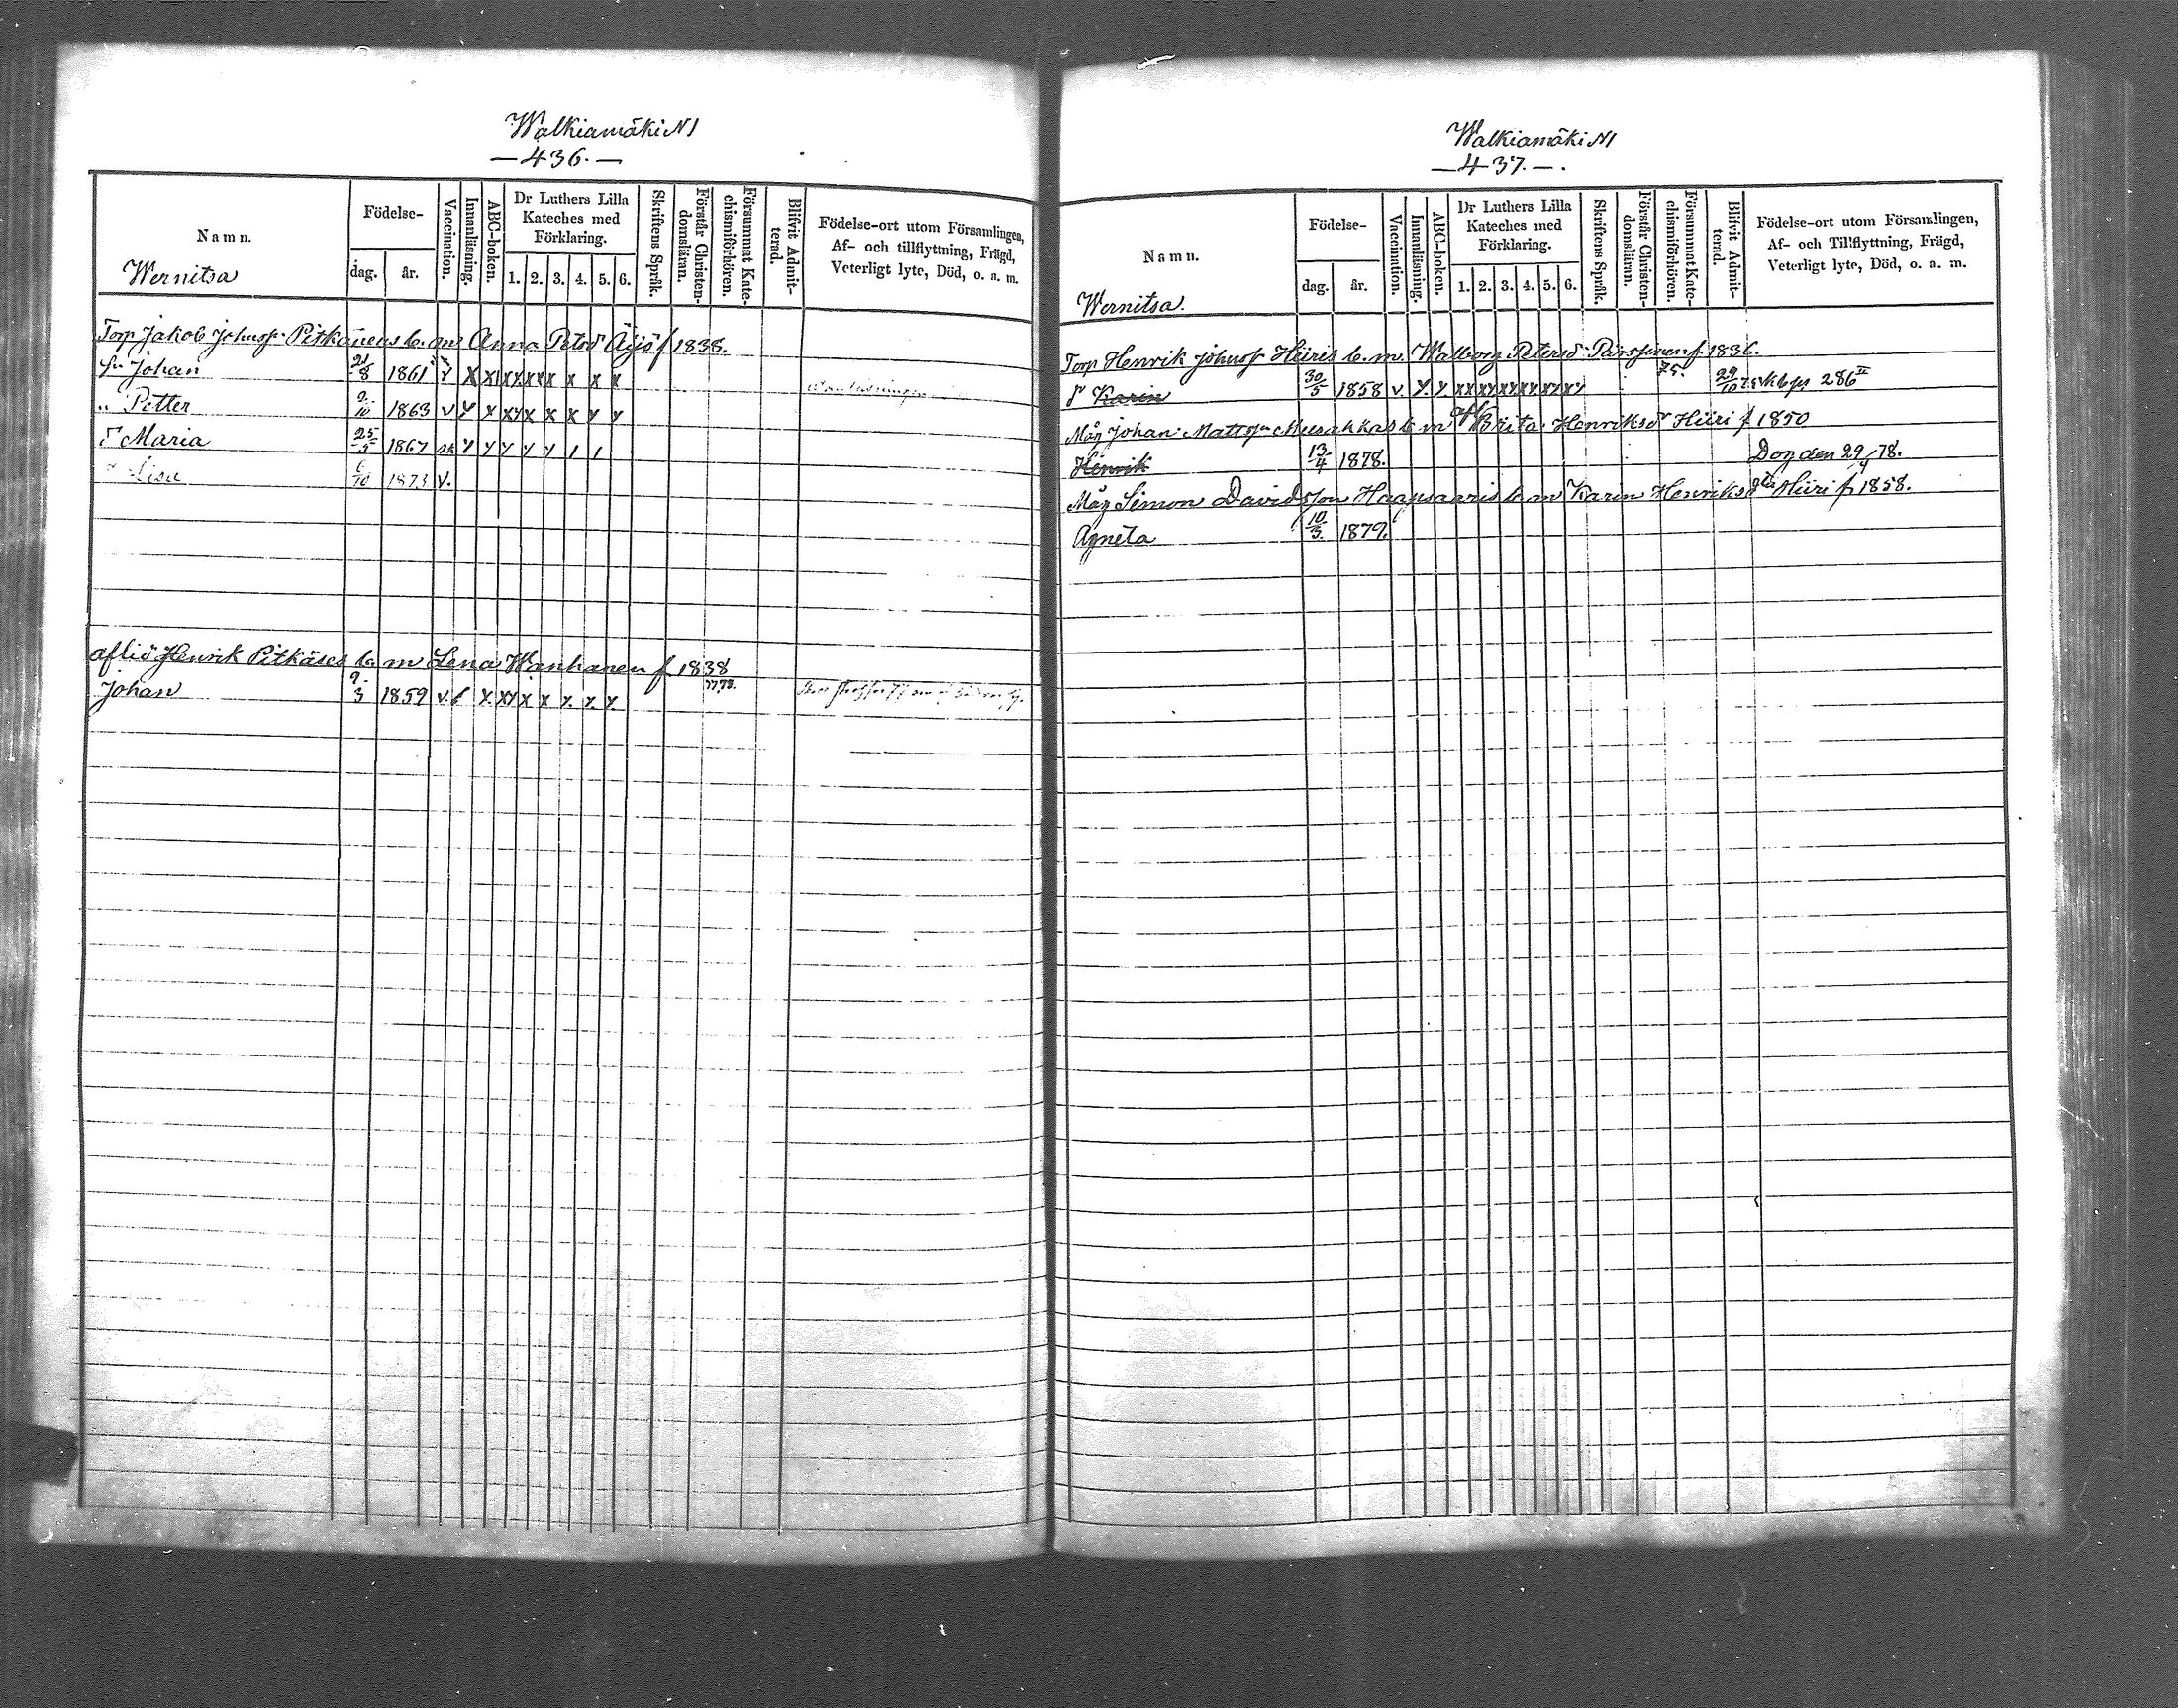 Walkiamäki N1
— 436. —
Namn.
Födelse-
dag.
år.
Vaccination.
Innanläsning.
ABC-boken.
Dr Luthers Lilla Kateches med Förklaring.
1. 2. 3. 4. 5. 6.
Skriftens Språk.
Förstår Christendomsläran.
Försummat Katechismiförhören.
Blifvit Admitterad.
Födelse-ort utom Församlingen, Af- och tillflyttning, Frägd, Veterligt lyte, Död, o. a. m.
Wernitsa
Torp Jakob Johnss: Pitkänens b. m. Anna Petsd Äijö f 1838.
Sn Johan 21/8 1861 v x x x x x x x x x
" Petter 9/10 1863 v y x x y x x x y y
Dr Maria 25/5 1867 y y y y y / /
" Lisa 6/10 1873 v.
aflid Henrik Pitkäses b. m Lena Wanhanen f 1838
Johan 9/3 1859 v. x. x y x x y. y. y. 77,78.
Walkiamäki N1
— 437. —.
Namn.
Födelse-
dag.
år.
Vaccination.
Innanläsning.
ABC-boken.
Dr Luthers Lilla Kateches med Förklaring.
1. 2. 3. 4. 5. 6.
Skriftens Språk.
Förstår Christendomsläran.
Försummat Katechismiförhören.
Blifvit Admitterad.
Födelse-ort utom Församlingen, Af- och Tillflyttning, Frägd, Veterligt lyte, Död, o. a. m.
Wernitsa.
Torp Henrik Johnss Hiiris b. m. Walborg Petersd: Pärssinen f 1836.
Dr Karin 30/5 1858 v. y. y. xx xy xy xy xy xy 75. 29/10 kbps 286 II
Måg Johan Mattss Musakkas b m Brita Henriksdr Hiiri f 1850
Henrik 13/4 1878. Dog den 29/4 78.
Måg Simon Davidsson Haapsaaris b. m Karin Henriksdr Hiiri f 1858.
Agneta 10/3. 1879.